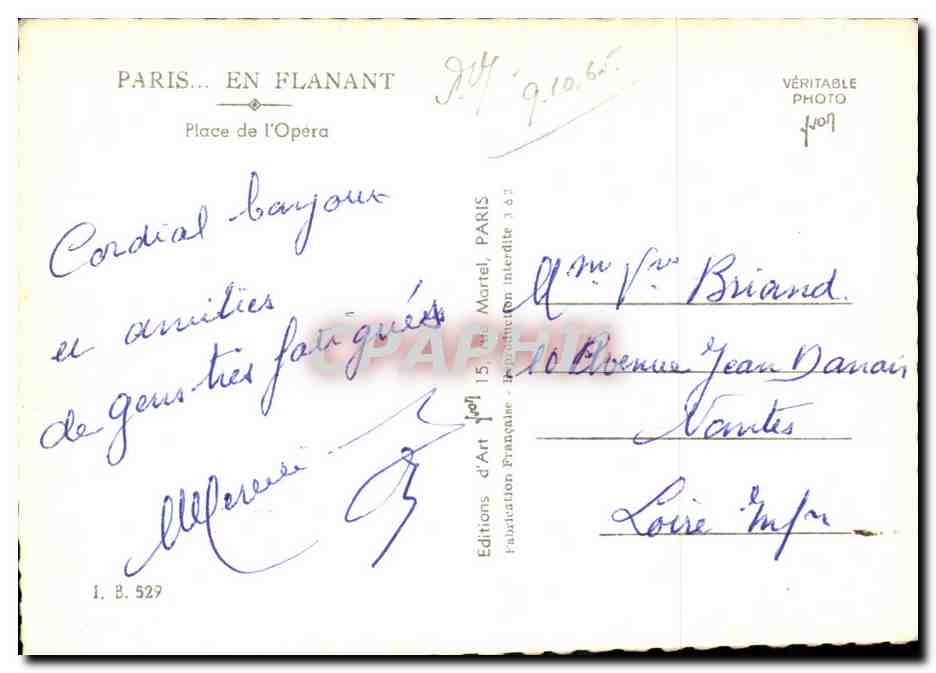 PARIS... EN FLANANT
Place de l'Opéra
9.10.65.
VÉRITABLE
PHOTO
yvon
Cordial bonjour
et amitiés
de gens très fatigués
I. B. 529
Editions d'Art yvon 15, rue Martel, PARIS
Fabrication Française - Reproduction interdite
Mme Vve Briand.
10 Avenue Jean
Nantes
Loire Infre
CPAPHIL